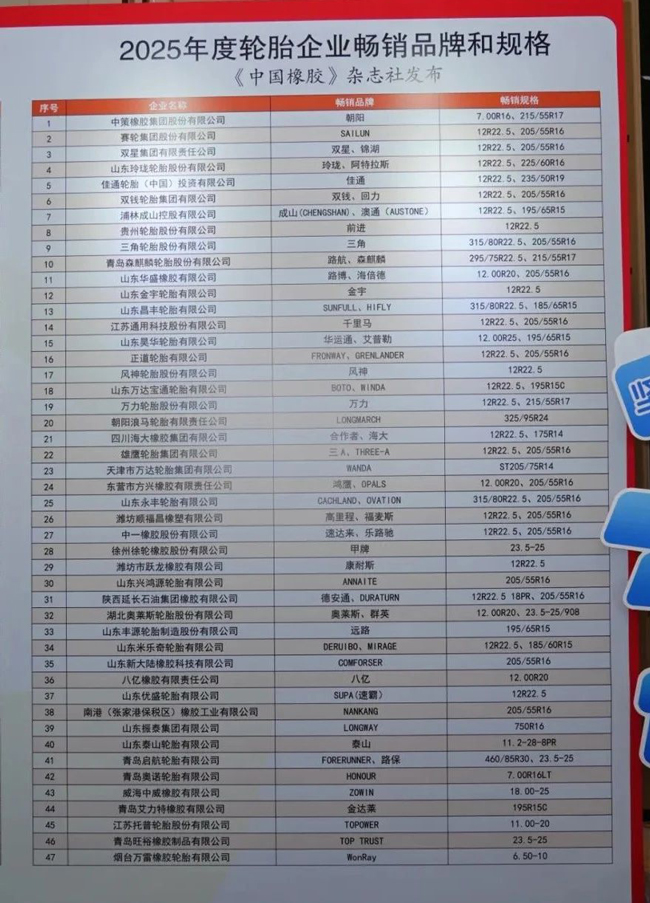 2025年度轮胎企业畅销品牌和规格
《中国橡胶》杂志社发布
序号 企业名称 畅销品牌 畅销规格
1 中策橡胶集团股份有限公司 朝阳 7.00R16、215/55R17
2 赛轮集团股份有限公司 SAILUN 12R22.5、205/55R16
3 双星集团有限责任公司 双星、锦湖 12R22.5、205/55R16
4 山东玲珑轮胎股份有限公司 玲珑、阿特拉斯 12R22.5、225/60R16
5 佳通轮胎（中国）投资有限公司 佳通 12R22.5、235/50R19
6 双钱轮胎集团有限公司 双钱、回力 12R22.5、205/55R16
7 浦林成山控股有限公司 成山(CHENGSHAN)、澳通（AUSTONE） 12R22.5、195/65R15
8 贵州轮胎股份有限公司 前进 12R22.5
9 三角轮胎股份有限公司 三角 315/80R22.5、205/55R16
10 青岛森麒麟轮胎股份有限公司 路航、森麒麟 295/75R22.5、215/55R17
11 山东华盛橡胶有限公司 路博、海倍德 12.00R20、205/55R16
12 山东金宇轮胎有限公司 金宇 12R22.5
13 山东昌丰轮胎有限公司 SUNFULL、HIFLY 315/80R22.5、185/65R15
14 江苏通用科技股份有限公司 千里马 12R22.5、205/55R16
15 山东昊华轮胎有限公司 华运通、艾普勒 12.00R25、195/65R15
16 正道轮胎有限公司 FRONWAY、GRENLANDER 12R22.5、205/55R16
17 风神轮胎股份有限公司 风神 12R22.5
18 山东万达宝通轮胎有限公司 BOTO、WINDA 12R22.5、195R15C
19 万力轮胎股份有限公司 万力 12R22.5、215/55R17
20 朝阳浪马轮胎有限责任公司 LONGMARCH 325/95R24
21 四川海大橡胶集团有限公司 合作者、海大 12R22.5、175R14
22 雄鹰轮胎集团有限公司 三A、THREE-A 12R22.5、205/55R16
23 天津市万达轮胎集团有限公司 WANDA ST205/75R14
24 东营市方兴橡胶有限责任公司 鸿鹰、OPALS 12.00R20、205/55R16
25 山东永丰轮胎有限公司 CACHLAND、OVATION 315/80R22.5、205/55R16
26 潍坊顺福昌橡塑有限公司 高里程、福麦斯 12R22.5、205/55R16
27 中一橡胶股份有限公司 速达来、乐路驰 12R22.5、205/55R16
28 徐州徐轮橡胶股份有限公司 甲牌 23.5-25
29 潍坊市跃龙橡胶有限公司 康耐斯 12R22.5
30 山东兴鸿源轮胎有限公司 ANNAITE 205/55R16
31 陕西延长石油集团橡胶有限公司 德安通、DURATURN 12R22.5 18PR、205/55R16
32 湖北奥莱斯轮胎股份有限公司 奥莱斯、群英 12.00R20、23.5-25/908
33 山东丰源轮胎制造股份有限公司 远路 195/65R15
34 山东米乐奇轮胎有限公司 DERUIBO、MIRAGE 12R22.5、185/60R15
35 山东新大陆橡胶科技有限公司 COMFORSER 205/55R16
36 八亿橡胶有限责任公司 八亿 12.00R20
37 山东优盛轮胎有限公司 SUPA(速霸) 12R22.5
38 南港（张家港保税区）橡胶工业有限公司 NANKANG 205/55R16
39 山东振泰集团有限公司 LONGWAY 750R16
40 山东泰山轮胎有限公司 泰山 11.2-28-8PR
41 青岛启航轮胎有限公司 FORERUNNER、路保 460/85R30、23.5-25
42 青岛奥诺轮胎有限公司 HONOUR 7.00R16LT
43 威海中威橡胶有限公司 ZOWIN 18.00-25
44 青岛艾力特橡胶有限公司 金达莱 195R15C
45 江苏托普轮胎股份有限公司 TOPOWER 11.00-20
46 青岛旺裕橡胶制品有限公司 TOP TRUST 23.5-25
47 烟台万雷橡胶轮胎有限公司 WonRay 6.50-10